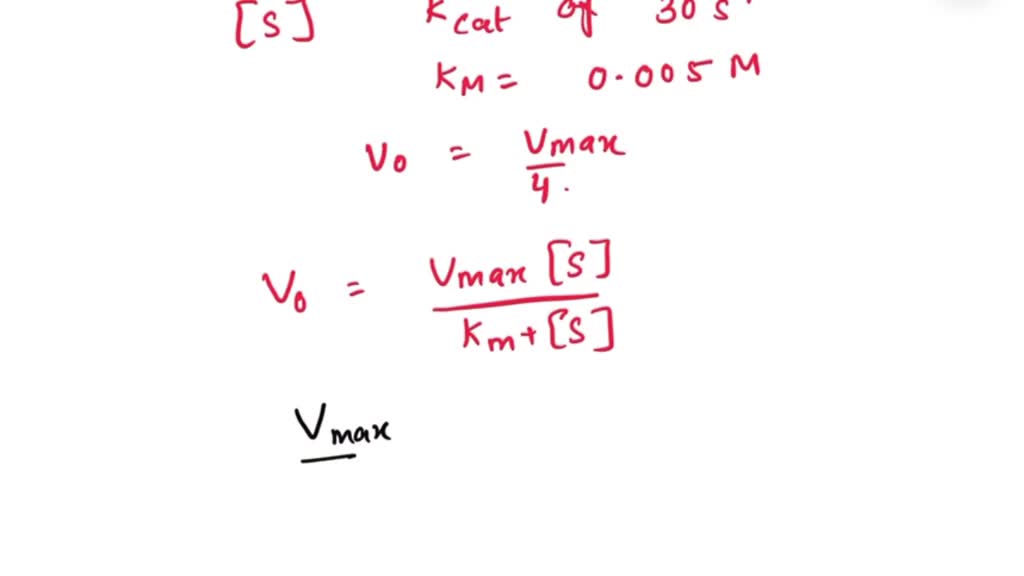 [S] Kcat of 30 s⁻¹
KM = 0.005 M
V0 = Vmax / 4.
V0 = Vmax [S] / Km + [S]
Vmax